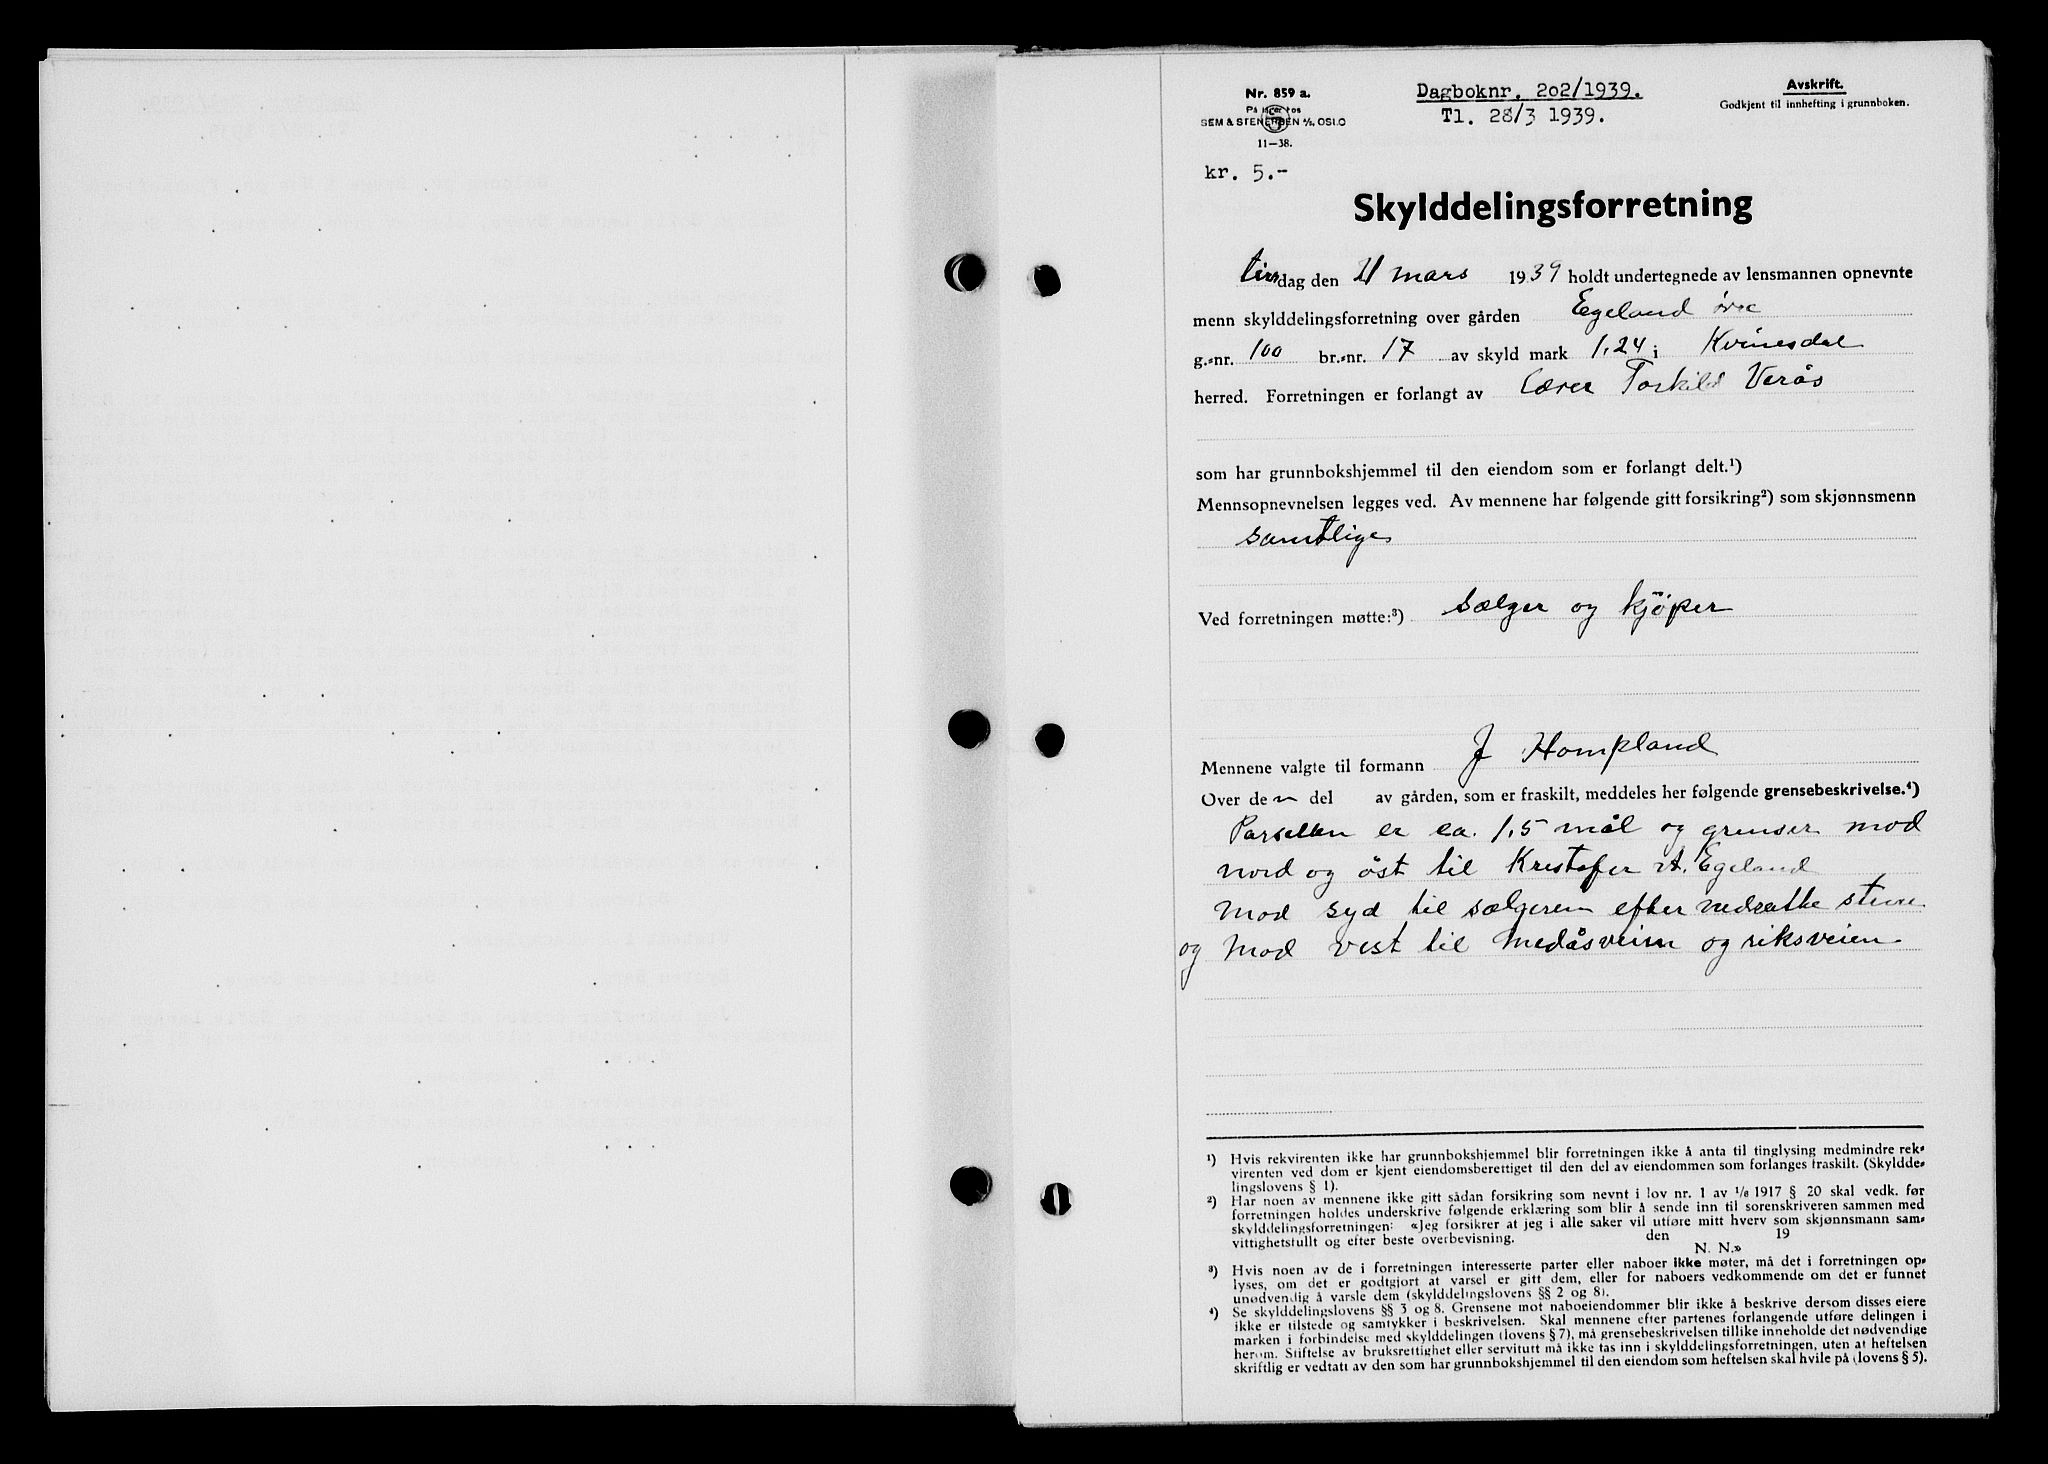 Nr. 859 a.
På lager hos
SEM & STENERSEN A/S, OSLO
11—38.
Dagboknr. 202/1939.
Tl. 28/3 1939.
Avskrift.
Godkjent til innhefting i grunnboken.
kr. 5.-
Skylddelingsforretning
tirsdag den 21 mars 1939 holdt undertegnede av lensmannen opnevnte
menn skylddelingsforretning over gården Egeland øvre
g.-nr. 100 br.-nr. 17 av skyld mark 1,24 i Kvinesdal
herred. Forretningen er forlangt av Lærer Torkild Verås
som har grunnbokshjemmel til den eiendom som er forlangt delt.¹)
Mennsopnevnelsen legges ved. Av mennene har følgende gitt forsikring²) som skjønnsmenn
samtlige
Ved forretningen møtte:³) Sælger og kjøper
Mennene valgte til formann J Hompland
Over den del av gården, som er fraskilt, meddeles her følgende grensebeskrivelse.⁴)
Parsellen er ca. 1,5 mål og grenser mod
nord og öst til Kristofer A. Egeland
mod syd til sælgeren efter nedsatte stene
og mod vest til Medåsveien og riksveien
¹) Hvis rekvirenten ikke har grunnbokshjemmel blir forretningen ikke å anta til tinglysing medmindre rek-
virenten ved dom er kjent eiendomsberettiget til den del av eiendommen som forlanges fraskilt. (Skyldde-
lingslovens § 1).
²) Har noen av mennene ikke gitt sådan forsikring som nevnt i lov nr. 1 av 1/6 1917 § 20 skal vedk. før
forretningen holdes underskrive følgende erklæring som blir å sende inn til sorenskriveren sammen med
skylddelingsforretningen: «Jeg forsikrer at jeg i alle saker vil utføre mitt hverv som skjønnsmann sam-
vittighetsfullt og efter beste overbevisning. den 19
N. N.»
³) Hvis noen av de i forretningen interesserte parter eller naboer ikke møter, må det i forretningen op-
lyses, om det er godtgjort at varsel er gitt dem, eller for naboers vedkommende om det er funnet
unødvendig å varsle dem (skylddelingslovens §§ 2 og 8).
⁴) Se skylddelingslovens §§ 3 og 8. Grensene mot naboeiendommer blir ikke å beskrive dersom disses eiere
ikke er tilstede og samtykker i beskrivelsen. Skal mennene efter partenes forlangende utføre delingen i
marken i forbindelse med skylddelingen (lovens § 7), må grensebeskrivelsen tillike inneholde det nødvendige
herom. Stiftelse av bruksrettighet eller servitutt må ikke tas inn i skylddelingsforretningen, uten at heftelsen
skriftlig er vedtatt av den som har grunnbokshjemmel til den eiendom som heftelsen skal hvile på (lovens § 5).